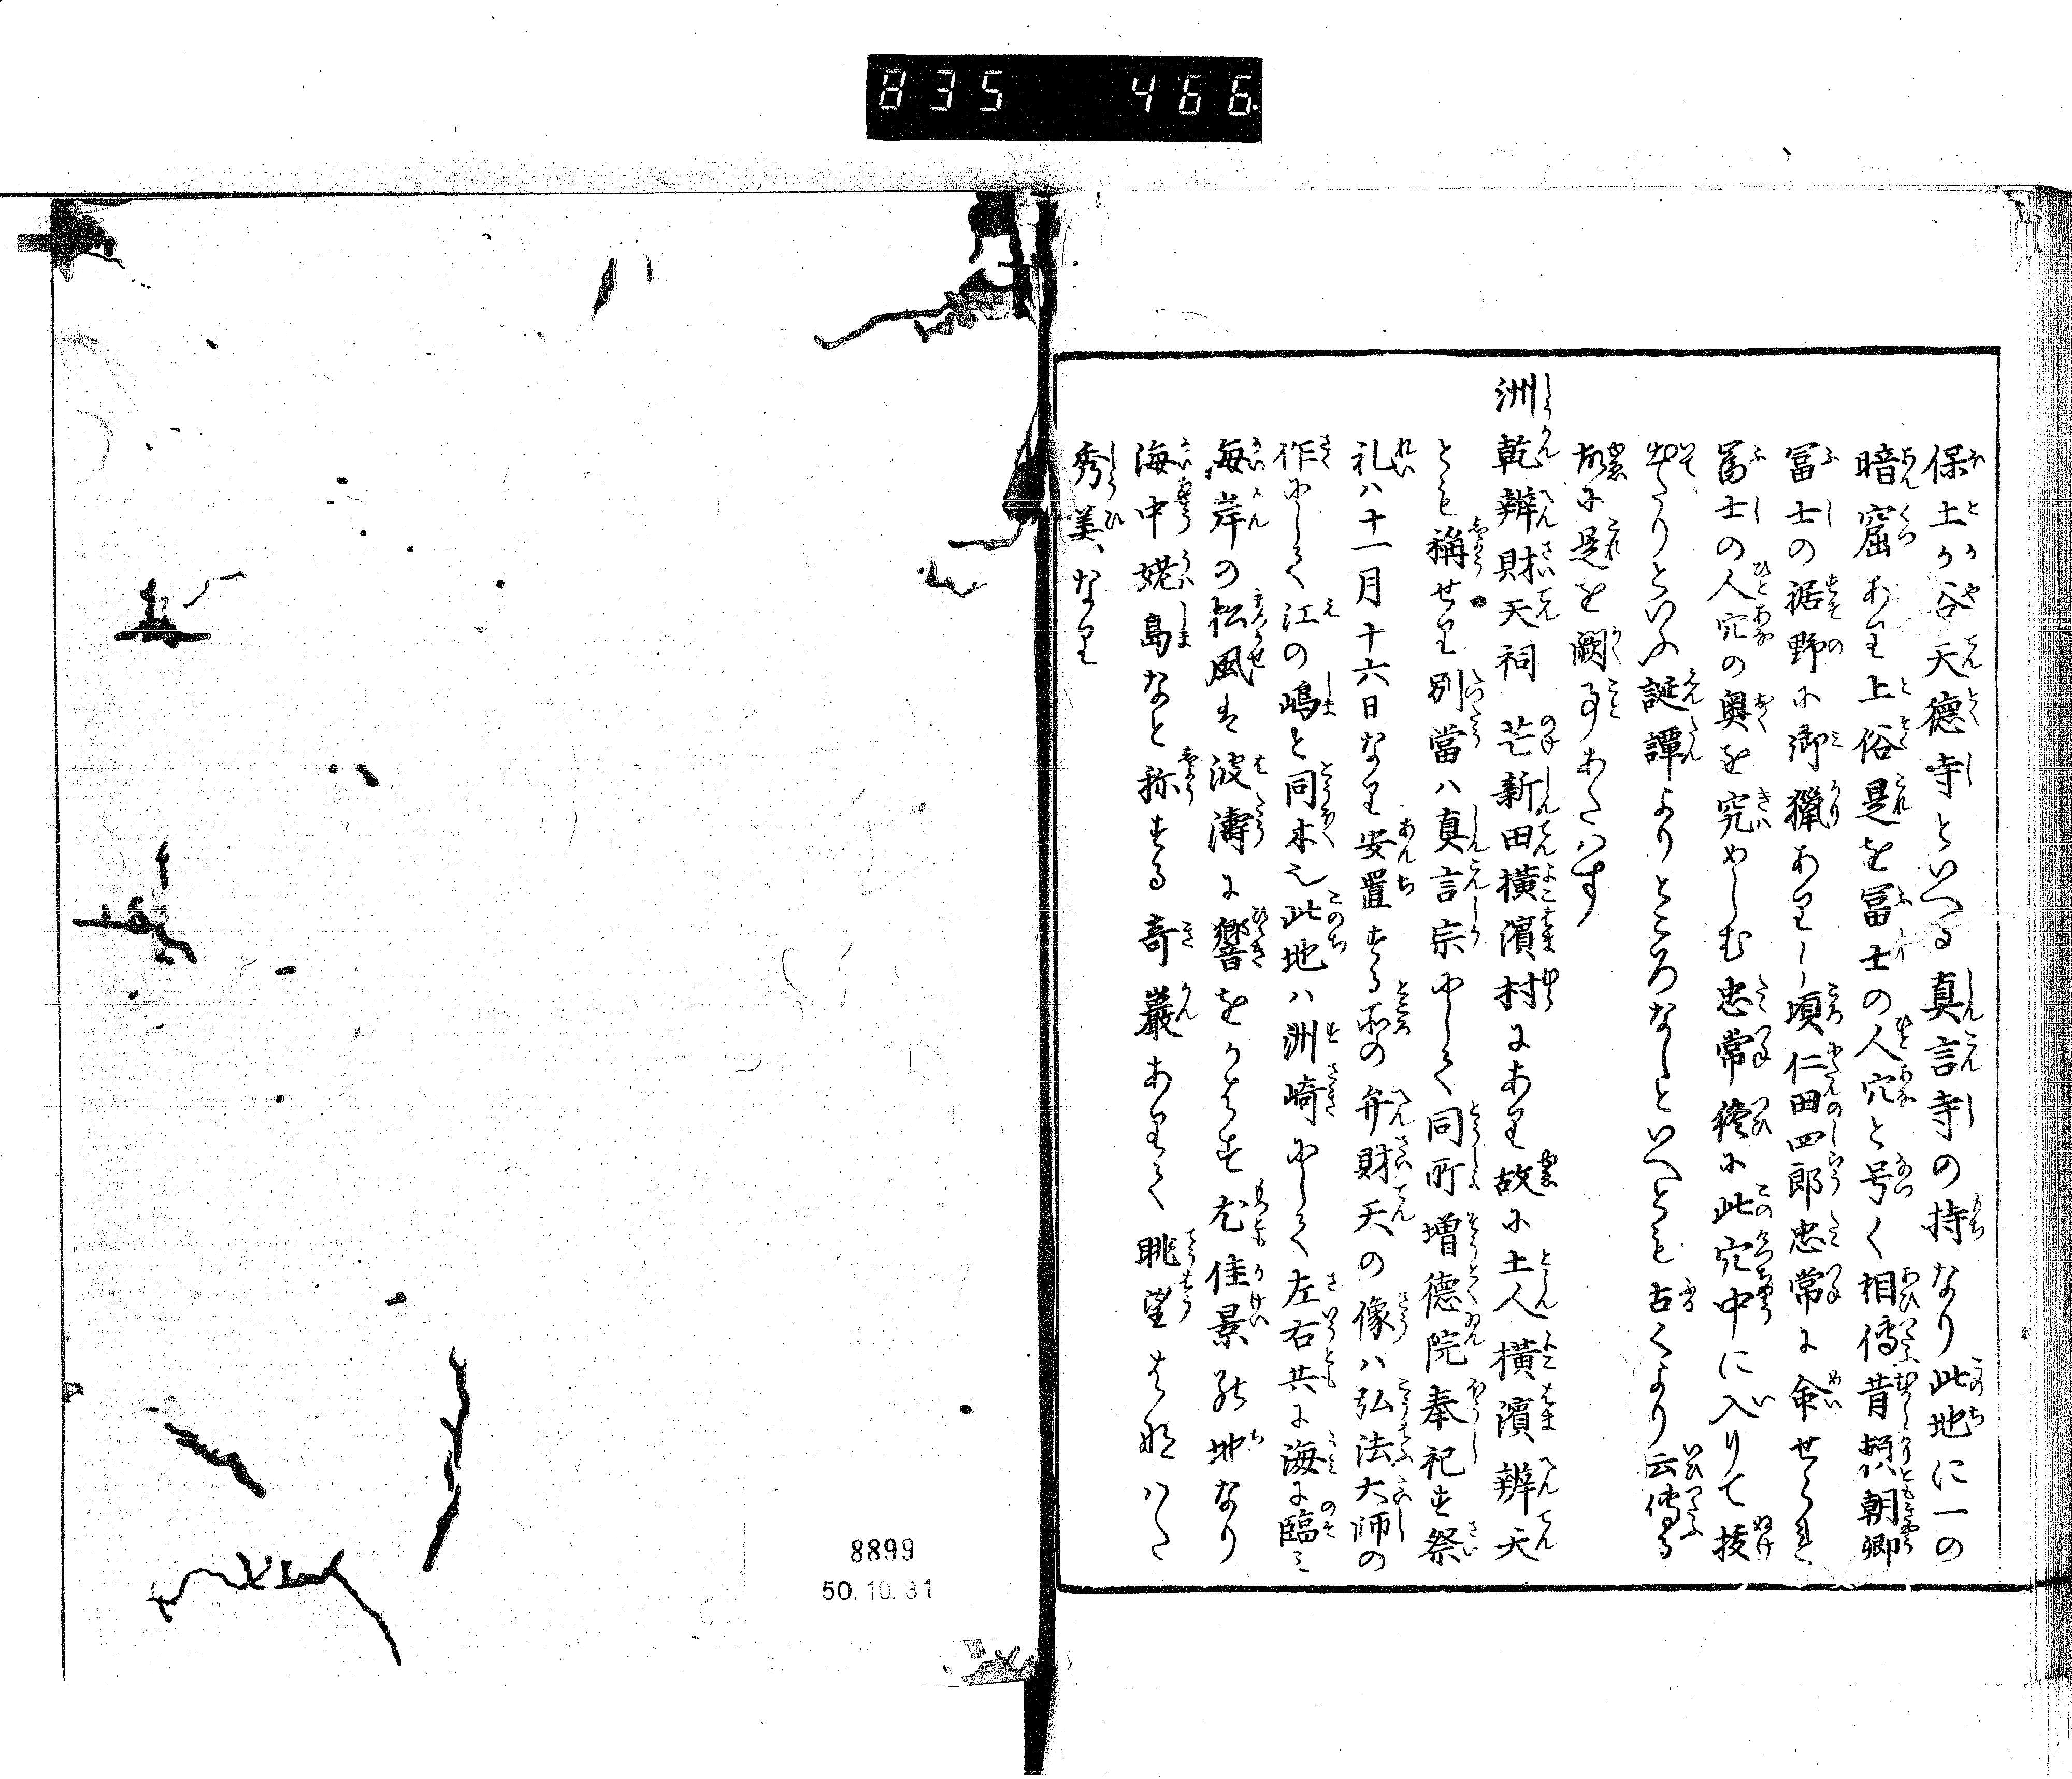 835 466
保土ヶ谷天徳寺といへる真言寺の持なり此地に一の
暗窟あり土俗是を冨士の人穴と号く相傳昔頼朝卿
冨士の裾野に御獵ありし頃仁田四郎忠常に命せられ
冨士の人穴の奥を究めしむ忠常終に此穴中に入りて抜
出たりといふ誕譚よりところなしといへとも古くより云傳る
故に是を闕事あたはす
洲乾辨財天祠 芒新田横濱村にあり故に土人横濱辨天
とも稱せり別當ハ真言宗にして同所増徳院奉祀す祭
礼ハ十一月十六日なり安置する所の弁財天の像ハ弘法大師の
作にして江の嶋と同木也此地ハ洲崎にして左右共に海に臨ミ
海岸の松風は波濤に響をかはす尤佳景の地なり
海中姥島なと称する奇巌ありて眺望はなハた
秀美なり
8899
50.10.31